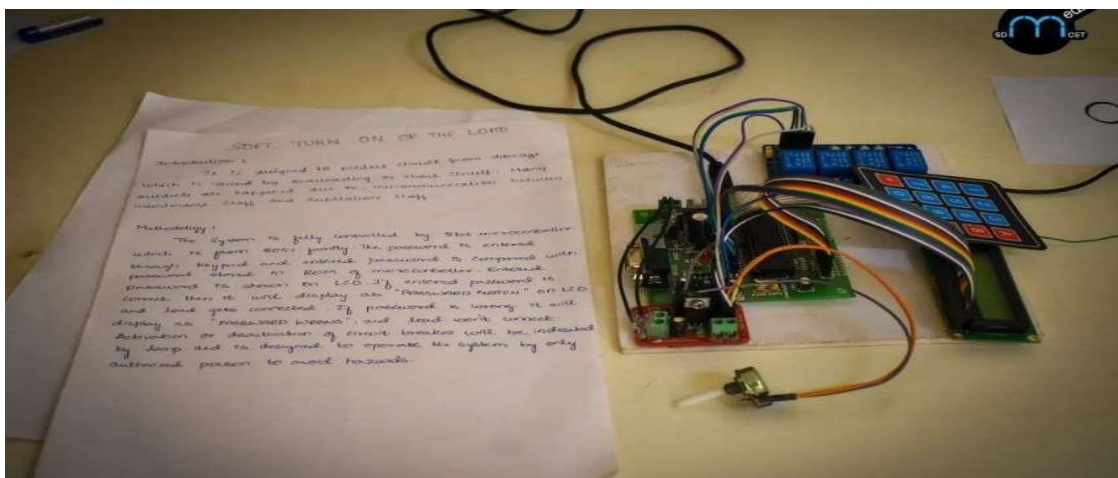 SOFT TURN ON OF THE LOAD
Introduction :
It is designed to protect circuit from damage
which is caused by overloading or short circuit. Many
accidents are happened due to miscommunication between
maintenance staff and substation staff.
Methodology :
The system is fully controlled by 8 bit microcontroller
which is from 8051 family. The password is entered
through keypad and entered password is compared with
password stored in Rom of microcontroller. Entered
password is shown on LCD. If entered password is
correct then it will display as "PASSWORD MATCH" on LCD
and load gets connected. If password is wrong it will
display as "PASSWORD WRONG", and load won't connect
Activation or deactivation of circuit breaker will be indicated
by lamp and is designed to operate the system by only
authorised person to avoid hazards.
SD m CET